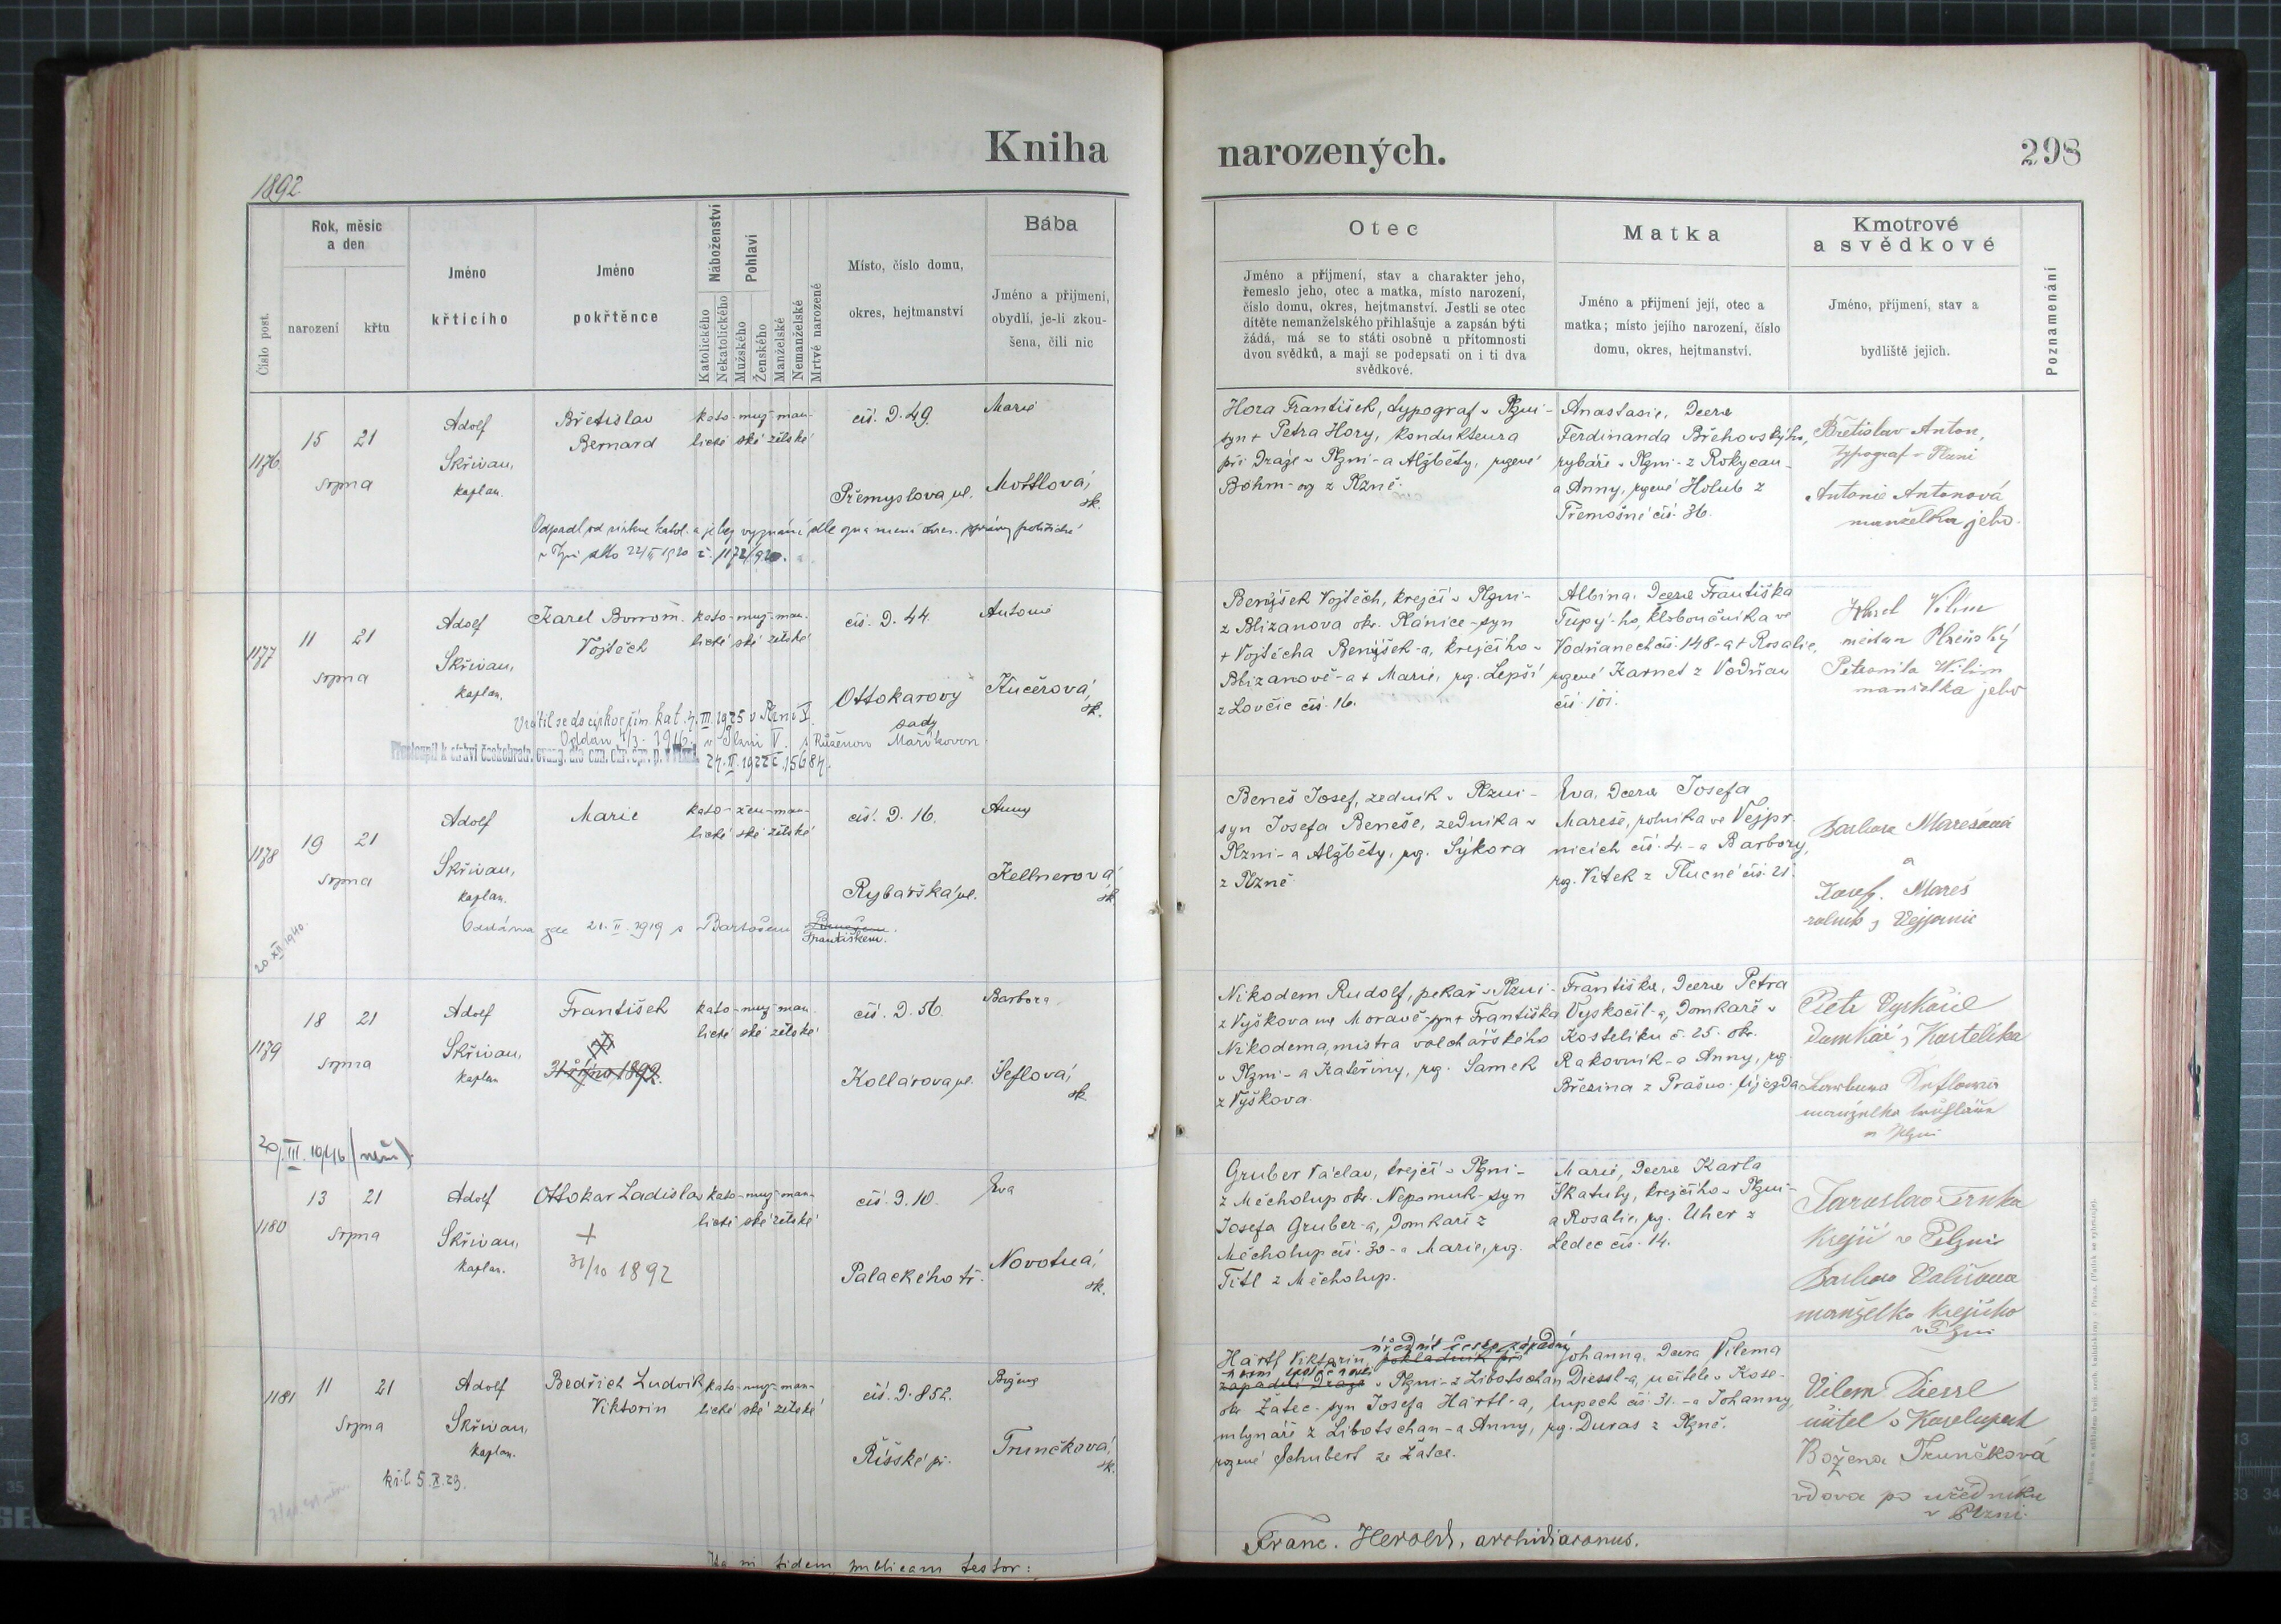 Kniha
1892
Rok, měsíc
a den
Číslo post.
narození
křtu
Jméno
křtícího
Jméno
pokřtěnce
Náboženství
Katolického
Nekatolického
Pohlaví
Mužského
Ženského
Manželské
Nemanželské
Mrtvě narozené
Místo, číslo domu,
okres, hejtmanství
Bába
Jméno a přijmení,
obydlí, je-li zkou-
šena, čili nic
1176
15 21
srpna
Adolf
Skřivan,
kaplan.
Břetislav
Bernard
kato- muž- man-
lické ské želské
čís. D. 49.
Přemyslova ul.
Marie
Mottlová,
zk.
Odpadl od církve katol. a je bez vyznání dle
1177
11 21
srpna
Adolf
Skřivan,
kaplan.
Karel Borrom.
Vojtěch
kato- muž- man-
lické ské želské
čís. D. 44.
Ottokarovy
sady
Antonie
Kučerová,
zk.
Vrátil se do církve řím. kat. 4. III. 1925 v Plzni V.
Oddán 4/3. 1916. v Plzni V. s Růženou Maříkovou
Přestoupil k církvi českobratr. evang.
24. II. 1922 č. 15684.
1178
19 21
srpna
Adolf
Skřivan,
kaplan.
Marie
kato- žen- man-
lické skéželské
čís. D. 16.
Rybářská ul.
Anna
Kellnerová
zk.
Oddána zde 21. II. 1919 s Bartošem
Františkem.
20. XII. 1940.
1179
18 21
srpna
Adolf
Skřivan,
kaplan
František
31 října 1892.
kato- muž- man-
lické ské želské
čís. D. 56.
Kollárova ul.
Barbora
Šeflová,
zk
20/III. 1946
1180
13 21
srpna
Adolf
Skřivan,
kaplan.
Ottokar Ladislav
+
31/10 1892
kato- muž- man-
lické ské želské
čís. D. 10.
Palackého tř.
Eva
Novotná,
zk.
1181
11 21
srpna
Adolf
Skřivan,
kaplan.
Bedřich Ludvik
Viktorin
kato- muž- man-
lické ské želské
čís. D. 852.
Říšské př.
Božena
Trunčková,
zk.
kř. l. 5. X. 23.
Ita in fidem publicam testor:
narozených.
298
Otec
Jméno a příjmení, stav a charakter jeho,
řemeslo jeho, otec a matka, místo narození,
číslo domu, okres, hejtmanství. Jestli se otec
dítěte nemanželského přihlašuje a zapsán býti
žádá, má se to státi osobně u přítomnosti
dvou svědků, a mají se podepsati on i ti dva
svědkové.
Matka
Jméno a příjmení její, otec a
matka; místo jejího narození, číslo
domu, okres, hejtmanství.
Kmotrové
a svědkové
Jméno, příjmení, stav a
bydliště jejich.
Poznamenání
Hora František, typograf v Plzni-
syn + Petra Hory, kondukteura
při dráze v Plzni- a Alžběty, rozené
Böhm- og z Plzně.
Anastasie, dcera
Ferdinanda Břehovského,
rybáře v Plzni- z Rokycan-
a Anny, rozené Holub z
Třemošné čís. 36.
Břetislav Anton,
typograf v Plzni
Antonie Antonová
manželka jeho.
Benýšek Vojtěch, krejčí v Plzni-
z Blizanova okr. Plánice- syn
+ Vojtěcha Benýšek-a, krejčího v
Blizanově- a + Marie, roz. Lepší
z Lovčic čís. 16.
Albina, dcera Františka
Tupý-ho, kloboučníka ve
Vodňanech čís. 148- a + Rosalie,
rozené Karnet z Vodňan
čís. 101.
Vilím
měšťan Plzeňský
Petronila Wilím
manželka jeho
Beneš Josef, zedník v Plzni-
syn Josefa Beneše, zedníka v
Plzni- a Alžběty, roz. Sýkora
z Plzně.
Eva, dcera Josefa
Mareše, rolníka ve Vejpr-
nicích čís. 4.- a Barbory,
roz. Vítek z Tlucné čís. 21.
Barbora Marešová
a
Josef. Mareš
rolník z Vejprnic
Nikodem Rudolf, pekař v Plzni-
z Vyškova na Moravě- syn + Františka
Nikodema, mistra valchářského
v Plzni- a Kateřiny, roz. Samek
z Vyškova.
Františka, dcera Petra
Vyskočil-a, domkáře v
Kostelíku č. 25. okr.
Rakovník- a Anny, roz.
Březina z Prašno-újezda
Petr Vyskočil
domkář z Kostelíka
Barbora Šeflová
manželka truhláře
v Plzni
Gruber Václav, krejčí v Plzni-
z Měcholup okr. Nepomuk- syn
Josefa Gruber-a, domkáře z
Měcholup čís. 30- a Marie, roz.
Titl z Měcholup.
Marie, dcera Karla
Škatuly, krejčího v Plzni-
a Rosalie, roz. Uher z
Ledec čís. 14.
Jaroslav Trnka
krejčí v Plzni
manželka krejčího
v Plzni
úředník česko západní
Härtl Viktorin, pokladník při
západní dráze v Plzni- z Libotschan
okr. Žatec- syn Josefa Härtl-a,
mlynáře z Libotschan- a Anny,
rozené Schubert ze Žatce.
Johanna, dcera Vilema
Diessl-a, učitele v Koze-
lupech čís. 31.- a Johanny,
roz. Duras z Plzně.
Vilem Diessl
učitel v Kozelupech
Božena Trunčková
vdova po úředníku
v Plzni.
Franc. Herold, archidiaconus.